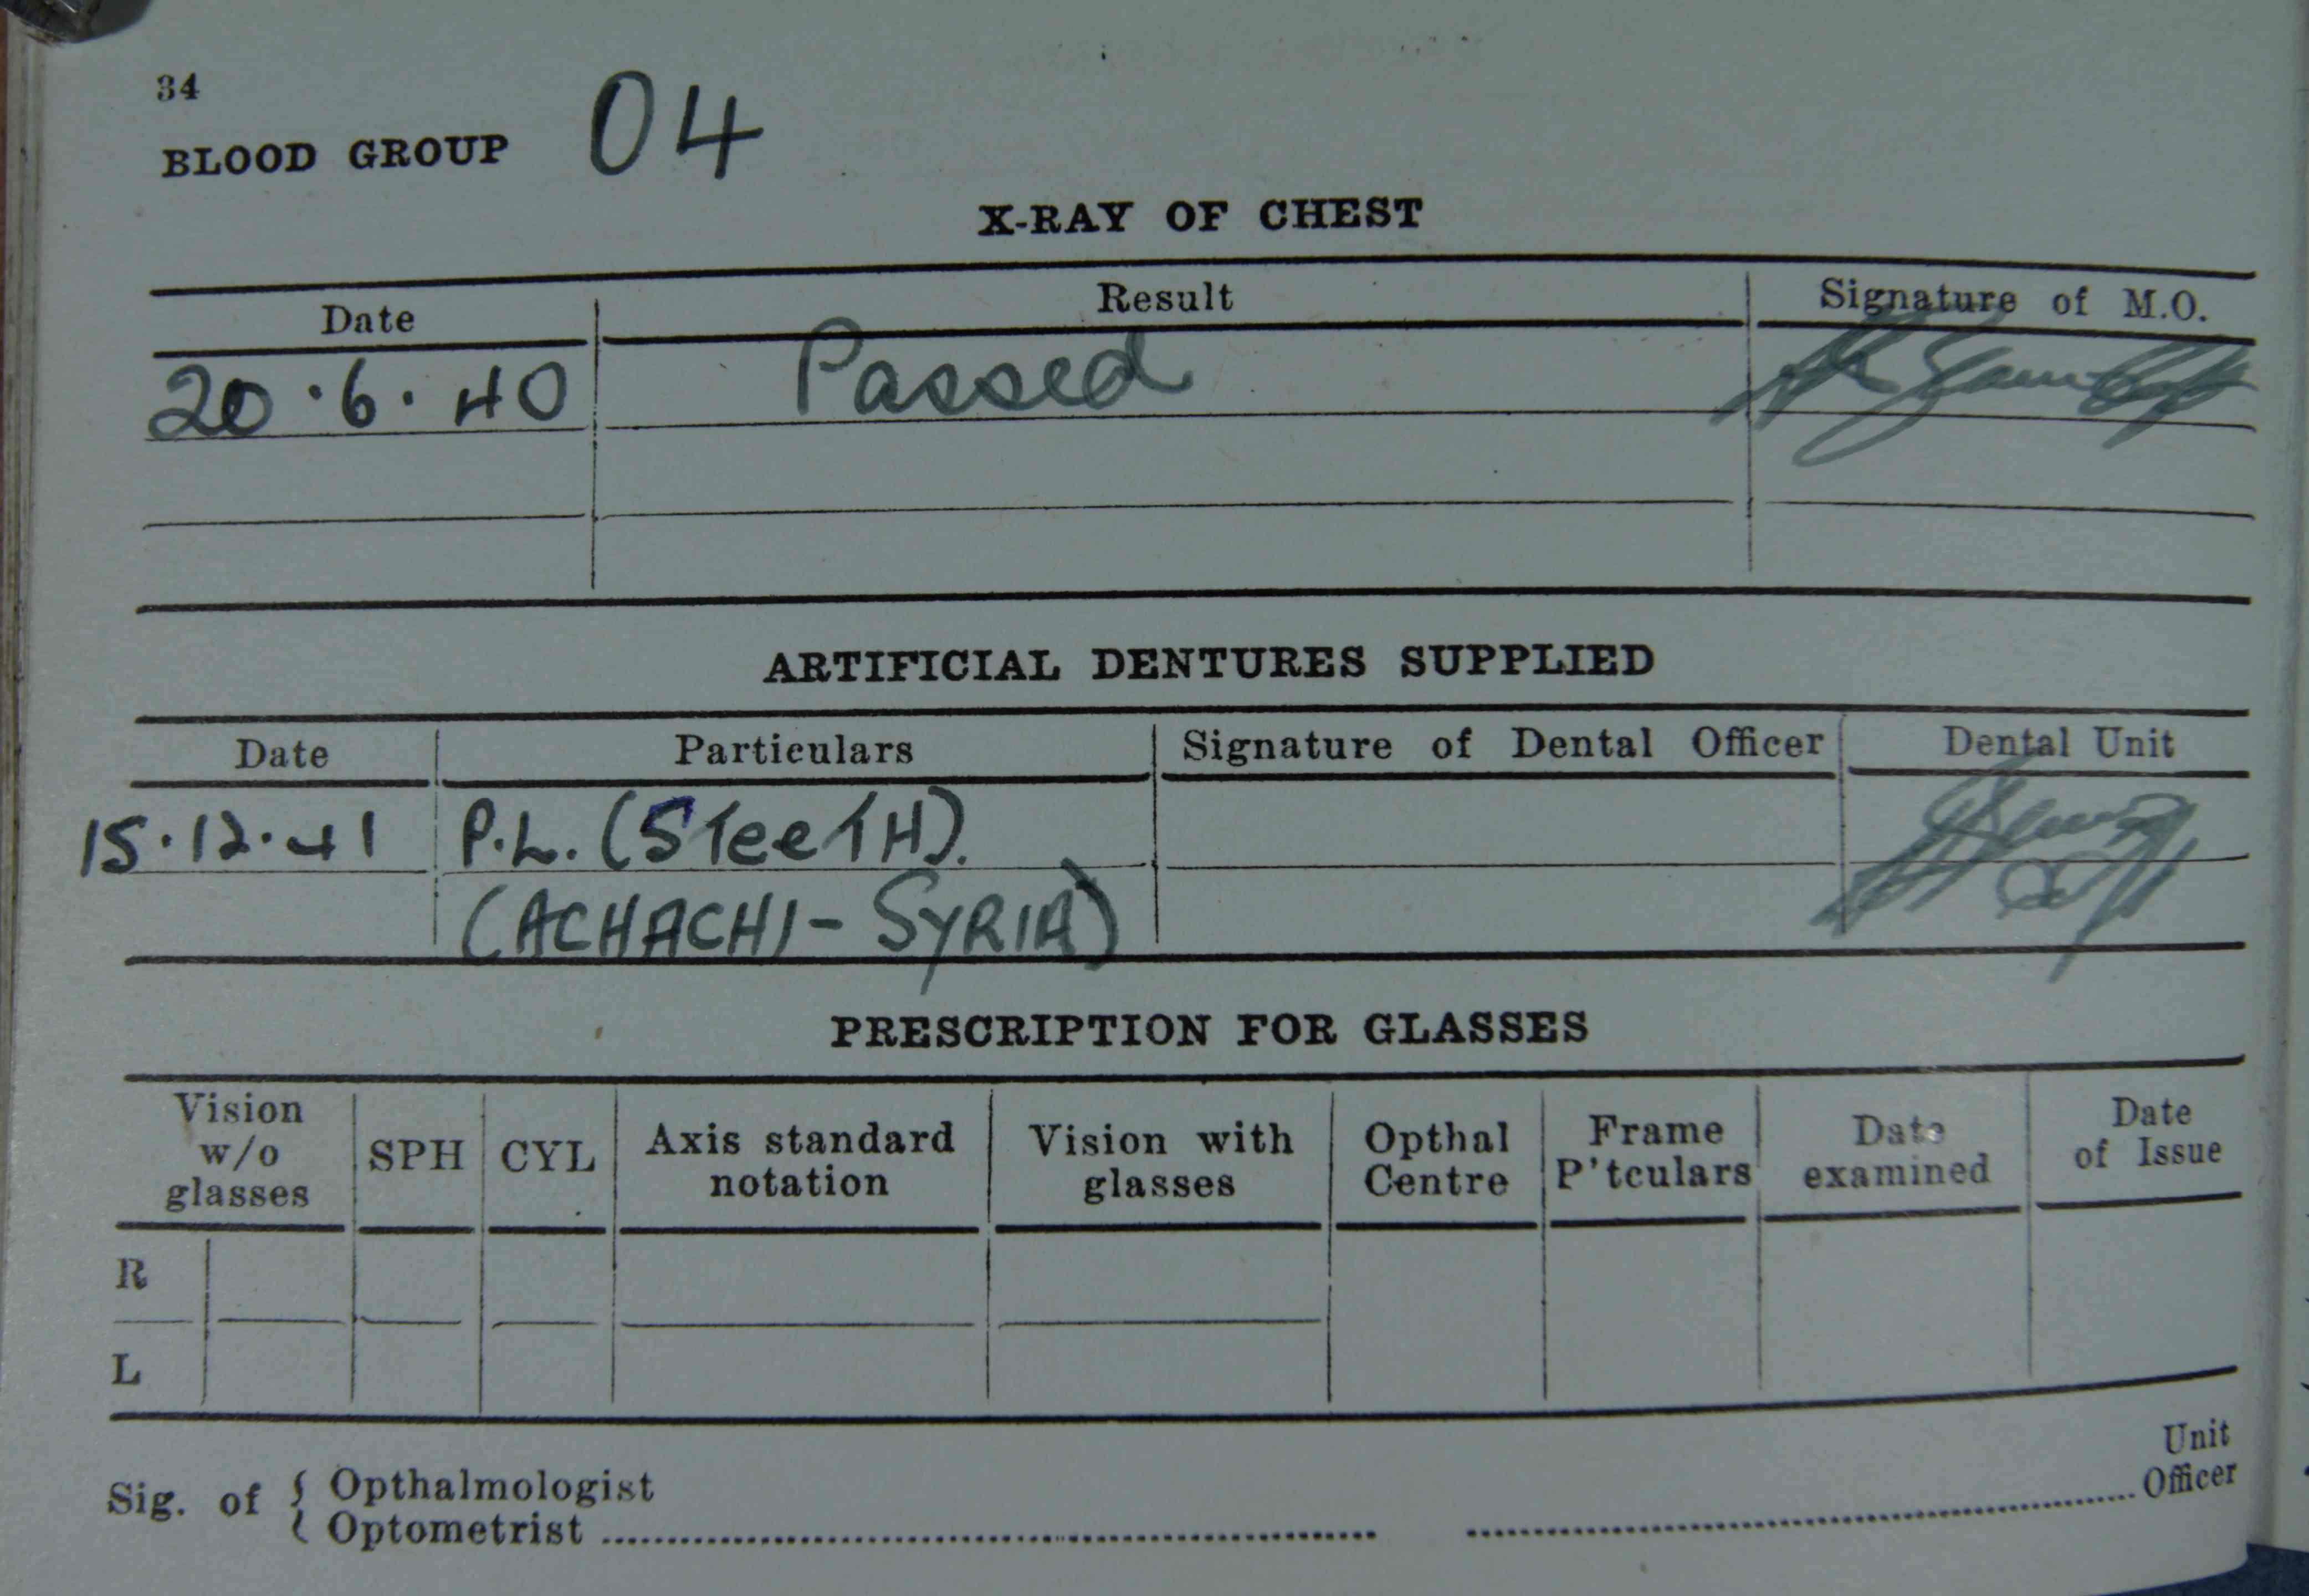 34
BLOOD GROUP O4
X-RAY OF CHEST
Date Result Signature of M.O.
20.6.40 Passed
ARTIFICIAL DENTURES SUPPLIED
Date Particulars Signature of Dental Officer Dental Unit
15.12.41 P.L. (5 TeeTH).
(ACHACHI - SYRIA)
PRESCRIPTION FOR GLASSES
Vision w/o glasses SPH CYL Axis standard notation Vision with glasses Opthal Centre Frame P'tculars Date examined Date of Issue
R
L
Sig. of { Opthalmologist
Optometrist ........ ........ Unit Officer